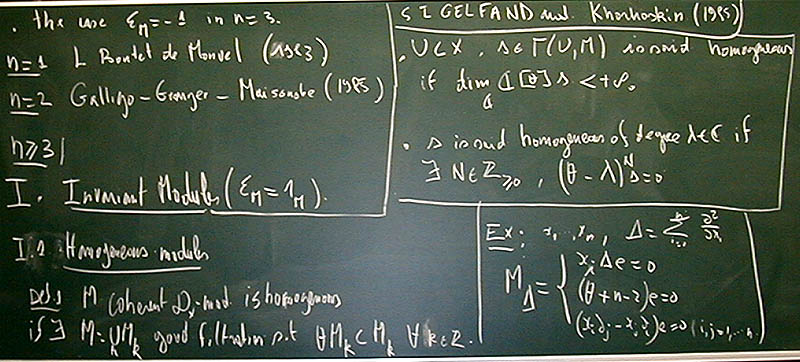 . the case ε_M = -1 in n=3.
n=1 L Boutet de Monvel (1983)
n=2 Galligo-Granger-Maisonobe (1985)
n≥3
I. Invariant Modules (ε_M = 1_M).
I.1 Homogeneous modules
Def.1 M coherent D_X-mod. is homogeneous
if ∃ M=∪_k M_k good filtration s.t θM_k ⊂ M_k ∀ k∈Z.
S I GELFAND and Khoroshkin (1985)
. U⊂X, s∈Γ(U,M) is said homogeneous
if dim_ℂ ℂ[θ]s < +∞.
. s is said homogeneous of degree λ∈ℂ if
∃ N∈Z≥0, (θ-λ)^N s=0
Ex: x₁...,x_n, Δ=∑ ∂²/∂x_i
M_Δ = { x_iΔe=0
(θ+n-2)e=0
(x_i∂_j-x_j∂_i)e=0 (i,j=1,...n)